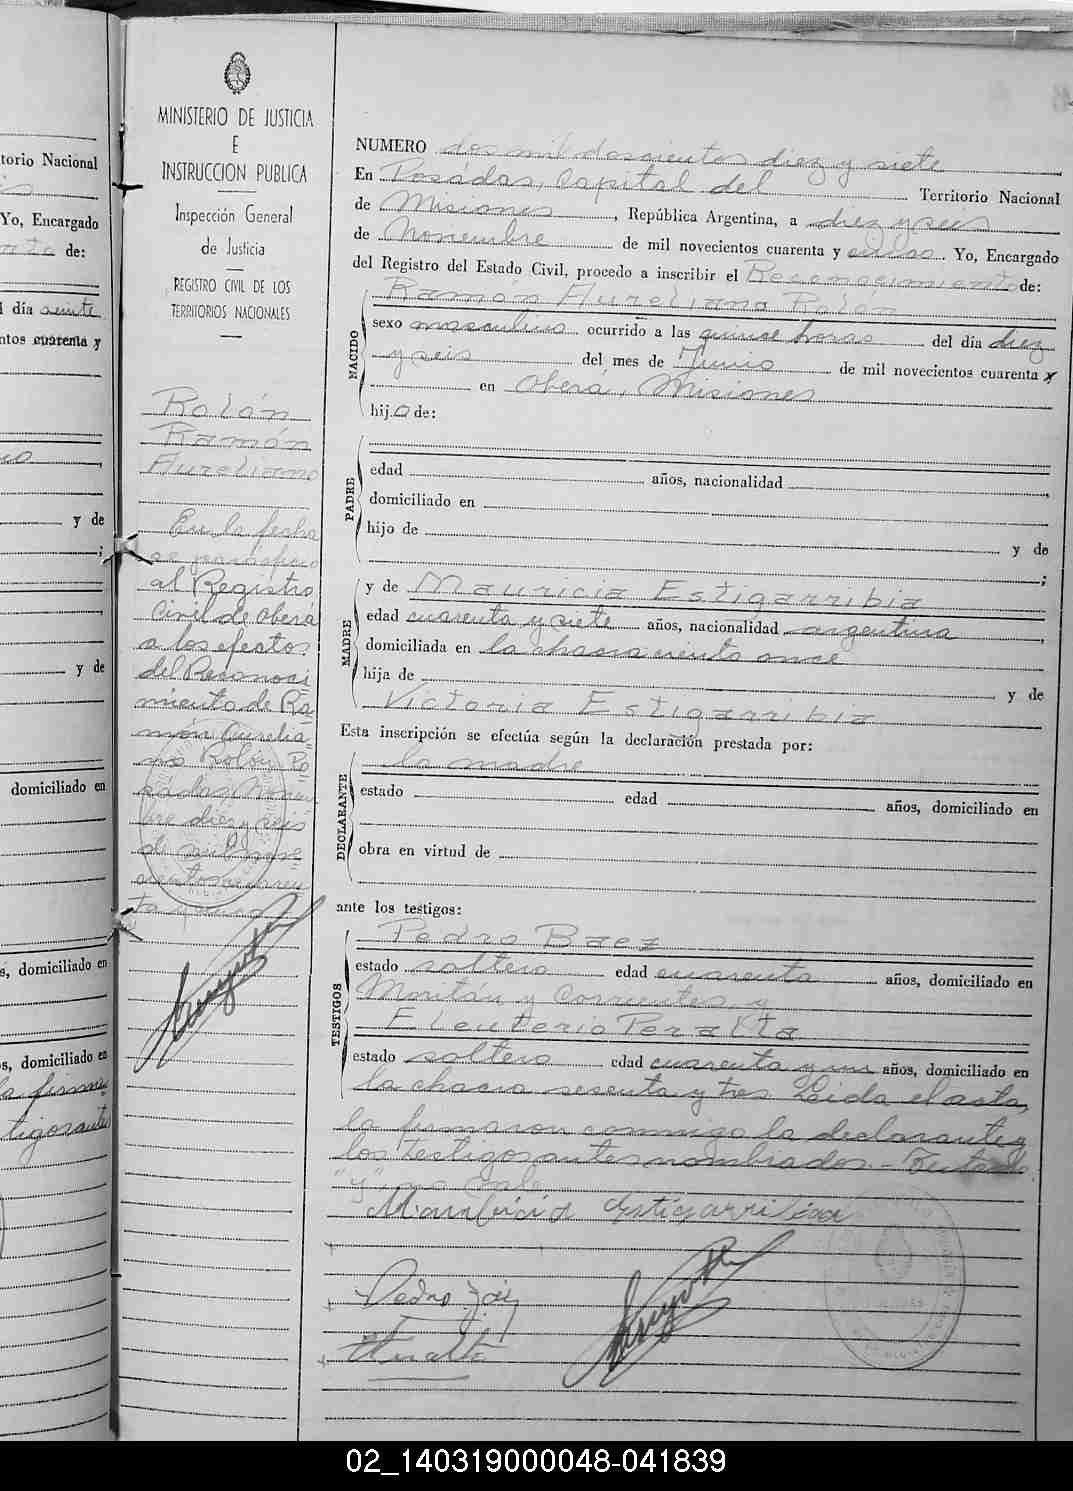 MINISTERIO DE JUSTICIA
E
INSTRUCCION PUBLICA
Inspección General
de Justicia
REGISTRO CIVIL DE LOS
TERRITORIOS NACIONALES
Rolón
Ramón
Aureliano
En la fecha
se participó
al Registro
Civil de Oberá
a los efectos
del Reconoci
miento de Ra
món Aurelia
no Rolón Po
sadas, Noviem
bre diez y seis
de mil nove
cientos cuaren
ta y
NUMERO dos mil doscientos diez y siete
En Posadas, Capital del Territorio Nacional
de Misiones, República Argentina, a diez y seis
de Noviembre de mil novecientos cuarenta y cinco Yo, Encargado
del Registro del Estado Civil, procedo a inscribir el Reconocimiento de:
Ramón Aureliano Rolón
NACIDO
sexo masculino ocurrido a las quince horas del día diez
y seis del mes de Junio de mil novecientos cuarenta y
en Oberá, Misiones
hijo de:
PADRE
edad años, nacionalidad
domiciliado en
hijo de y de
;
MADRE
y de Mauricia Estigarribia
edad cuarenta y siete años, nacionalidad argentina
domiciliada en la chacra ciento once
hija de y de
Victoria Estigarribia
Esta inscripción se efectúa según la declaración prestada por:
la madre
DECLARANTE
estado edad años, domiciliado en
obra en virtud de
ante los testigos:
TESTIGOS
Pedro Baez
estado soltero edad cuarenta años, domiciliado en
Moritán y Corrientes y
Eleuterio Peralta
estado soltero edad cuarenta y un años, domiciliado en
la chacra sesenta y tres Leida el acta,
la firmaron conmigo la declarante y
los testigos antes nombrados - Testado
"y" no vale
Mauricia Estigarribia
Pedro Baez
Peralta
torio Nacional
Yo, Encargado
de:
l día siete
ntos cuarenta y
y de
;
y de
domiciliado en
s, domiciliado en
s, domiciliado en
la firma
tigos antes
02_140319000048-041839